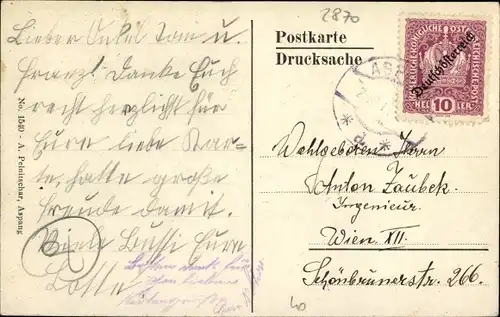 2870
Lieber Onkel Tom u.
Franzl! Danke Euch
recht herzlichst für
Eure liebe Kar-
te, hatte große
Freude damit.
Viele Bussi Eure
Lotte
No. 1540 - A. Pelnitschar, Aspang
Postkarte
Drucksache
KAISERLICHE KÖNIGLICHE ÖSTERREICHISCHE POST
Deutschösterreich
HELLER
10
ASP
Wohlgeboren Herrn
Anton Zaubek
Ingenieur
Wien XII.
Schönbrunerstr. 266.
40